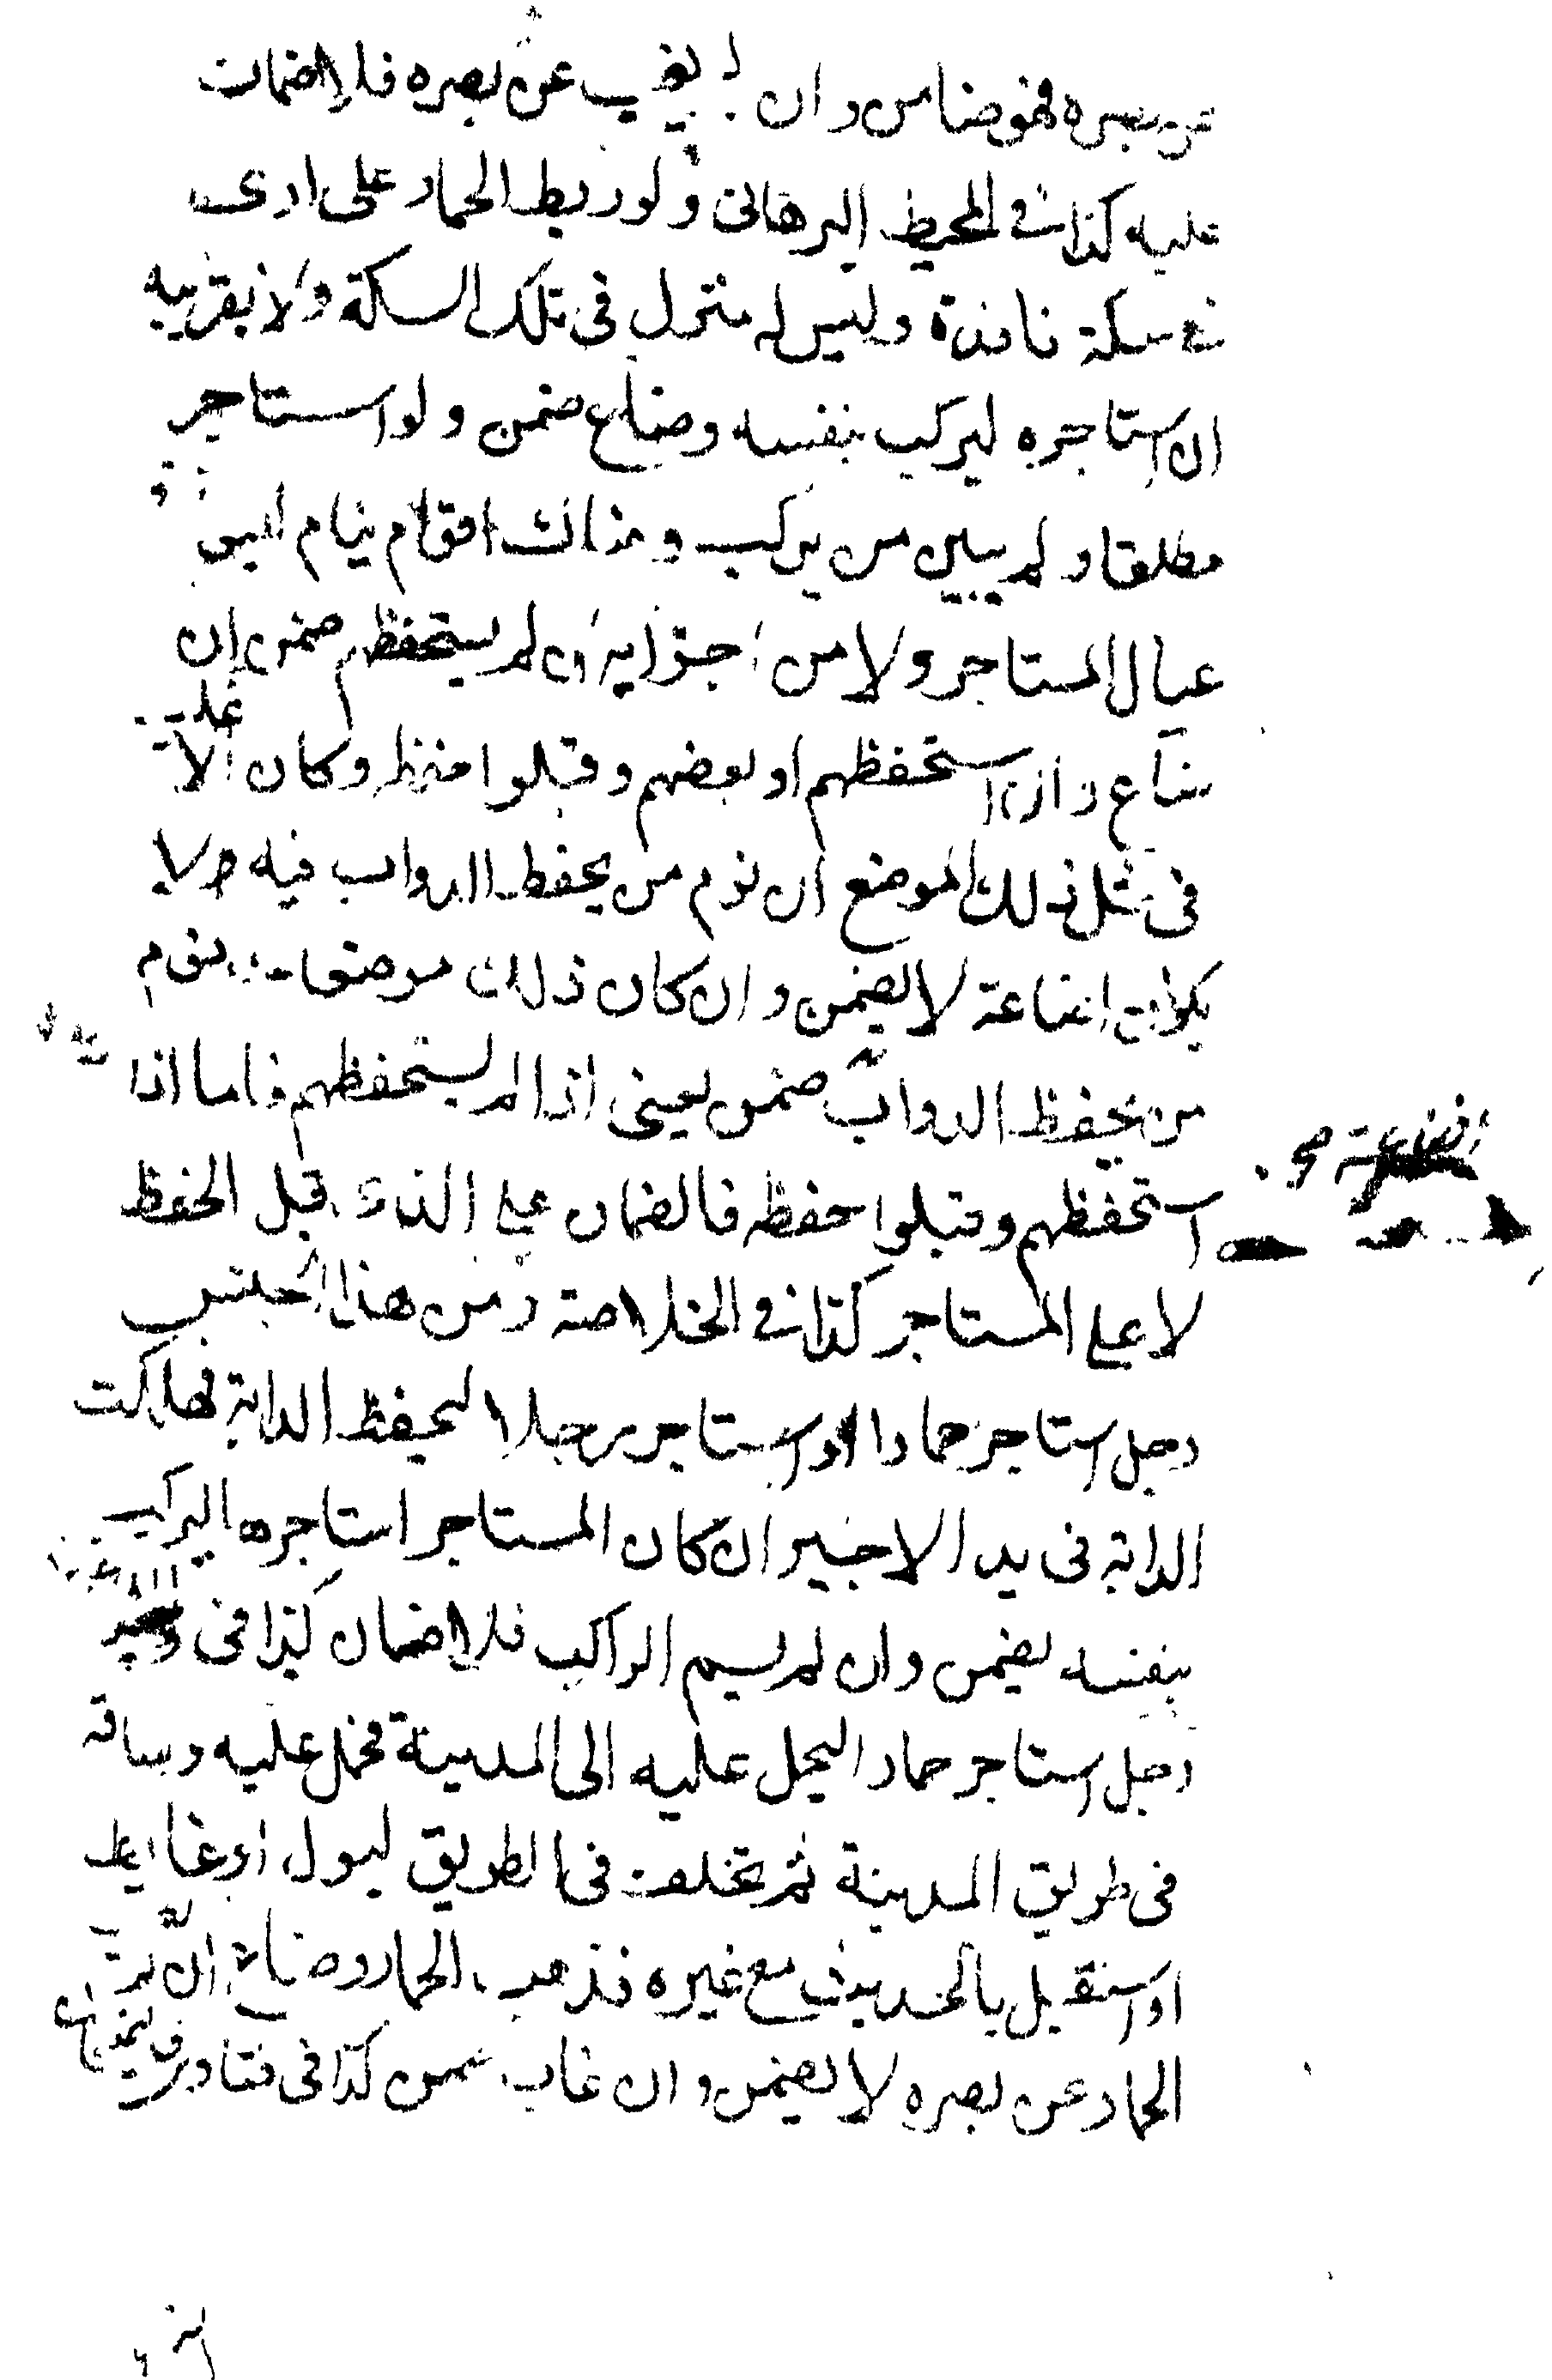 عن بصره فهو ضامن وان لم يغيب عن بصره فلا ضمان
عليه كذا في المحيط البرهانى ولو ربط الحمار على ارى
في سكة نافذة وليس له منزل فى تلك السكة ولا بقربيه
ان استاجره ليركب بنفسه وضاع ضمن ولو استاجر
مطلقا ولم يبين من يركب وهناك اقوام نيام ليسو
عيال المستاجر ولا من اجرايه ان لم يستحفظهم ضمن ان
ضاع وان استحفظهم او بعضهم وقبلوا حفظه وكان الا غلب
فى مثل ذلك الموضع ان نوم من يحفظ الدواب فيه ولا
يكون اضاعة لا يضمن وان كان ذلك موضعا نوم
من يحفظ الدواب ضمن يعنى اذا لم يستحفظهم فاما اذا
اضاعة صح
استحفظهم وقبلوا حفظه فالضمان على الذى قبل الحفظ
لا على المستاجر كذا في الخلاصة ومن هذا الجنس
رجل استاجر حمارا او استاجر رجلا ليحفظ الدابة فهلكت
الدابة فى يد الاجير ان كان المستاجر استاجرها ليركب
بنفسه يضمن وان لم يسم الراكب فلا ضمان كذا فى
رجل استاجر حمارا ليحمل عليه الى المدينة فحمل عليه وساقه
فى طريق المدينة ثم تخلف فى الطريق لبول او غايط
او استقبل بالحديث مع غيره فذهب الحمار وضاع ان لم
الحمار عن بصره لا يضمن وان غاب ضمن كذا فى فتاوى